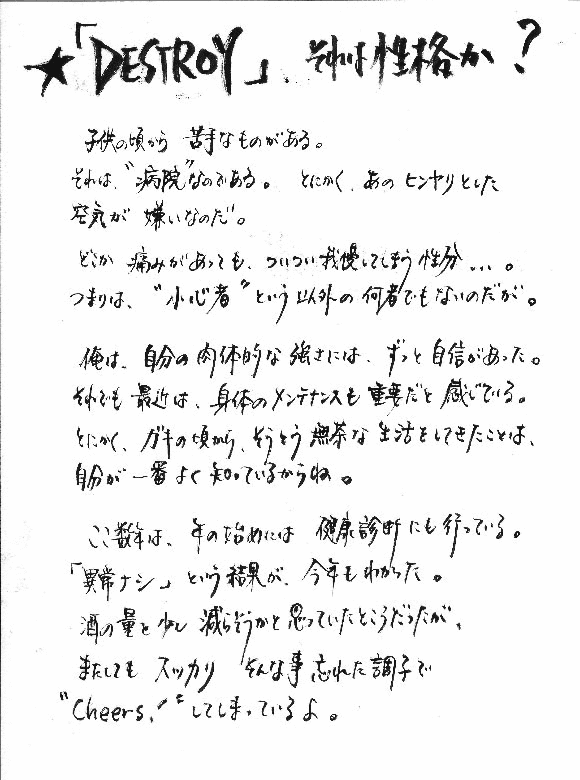 ★「DESTROY」、それは性格か？
子供の頃から 苦手なものがある。
それは、“病院”なのである。 とにかく、あの ヒンヤリとした
空気が 嫌いなのだ。
どこか 痛みがあっても、ついつい我慢してしまう 性分...。
つまりは、“小心者”という以外の 何者でもないのだが。
俺は、自分の肉体的な強さには、ずっと自信があった。
それでも 最近は、身体のメンテナンスも 重要だと 感じている。
とにかく、ガキの頃から、そうとう 無茶な 生活をしてきたことは、
自分が 一番 よく 知っているからね。
ここ数年は、年の始めには 健康診断にも行っている。
「異常ナシ」という結果が、今年もわかった。
酒の量を少し 減らそうかと思っていたところだったが、
またしても スッカリ そんな事 忘れた調子で
“Cheers!”してしまっているよ。